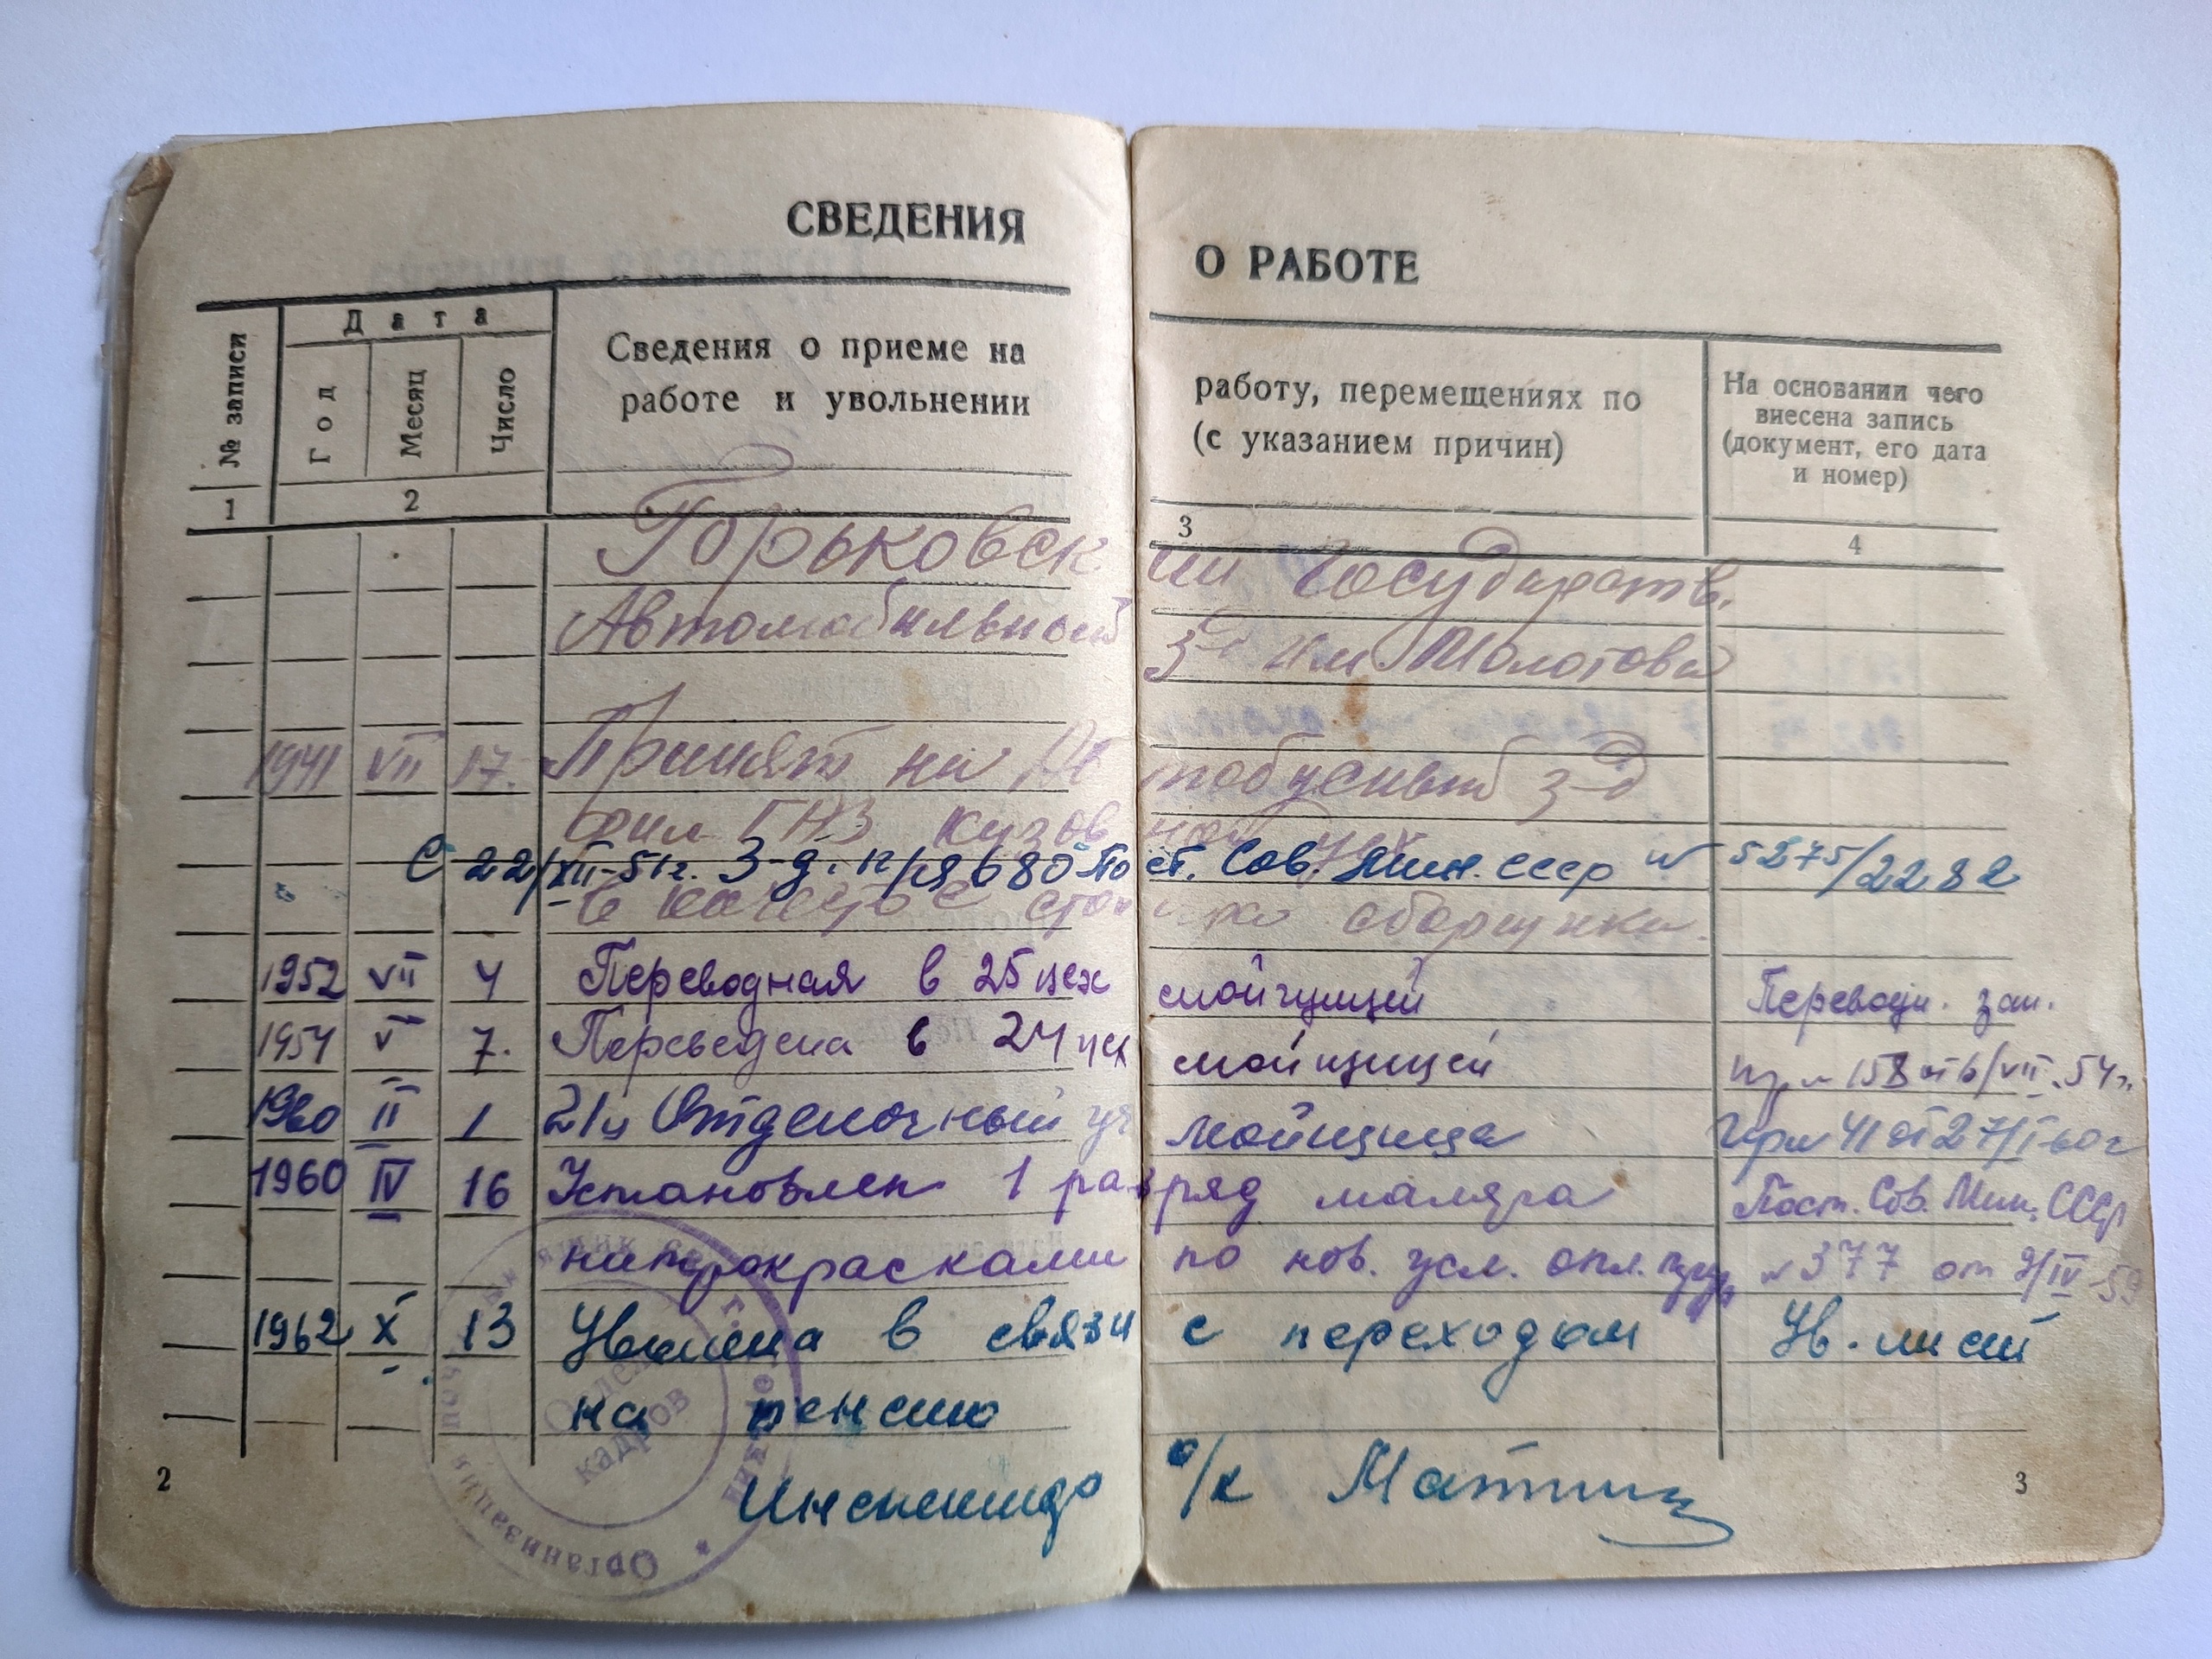 СВЕДЕНИЯ О РАБОТЕ
№ записи
Дата
Год
Месяц
Число
Сведения о приеме на работу, перемещениях по
работе и увольнении (с указанием причин)
На основании чего
внесена запись
(документ, его дата
и номер)
1 2 3 4
Горьковский Государств.
Автомобильный з-д им. Молотова
1941 VII 17. Принят на Автобусный з-д
фил ГАЗ кузовной цех
С 22/XII-51г. З-д. п/я 680 Пост. Сов. Мин. СССР № 5275/2282
в качестве сборщика.
1952 VII 4 Переводная в 25 цех мойщицей Переводн. зап.
1954 V 7. Переведена в 24 цех мойщицей 158 от 6/VII.54г.
1960 II 1 21ц Отделочный уч мойщица 41 от 27/I-60г
1960 IV 16 Установлен 1 разряд маляра Пост. Сов. Мин. СССР
нитрокрасками по нов. усл. опл. труда № 377 от 9/IV-59
1962 X 13 Уволена в связи с переходом Ув. лист
на пенсию
Инспектор о/к
Организация почтовый ящик
Отдел
кадров
2
3